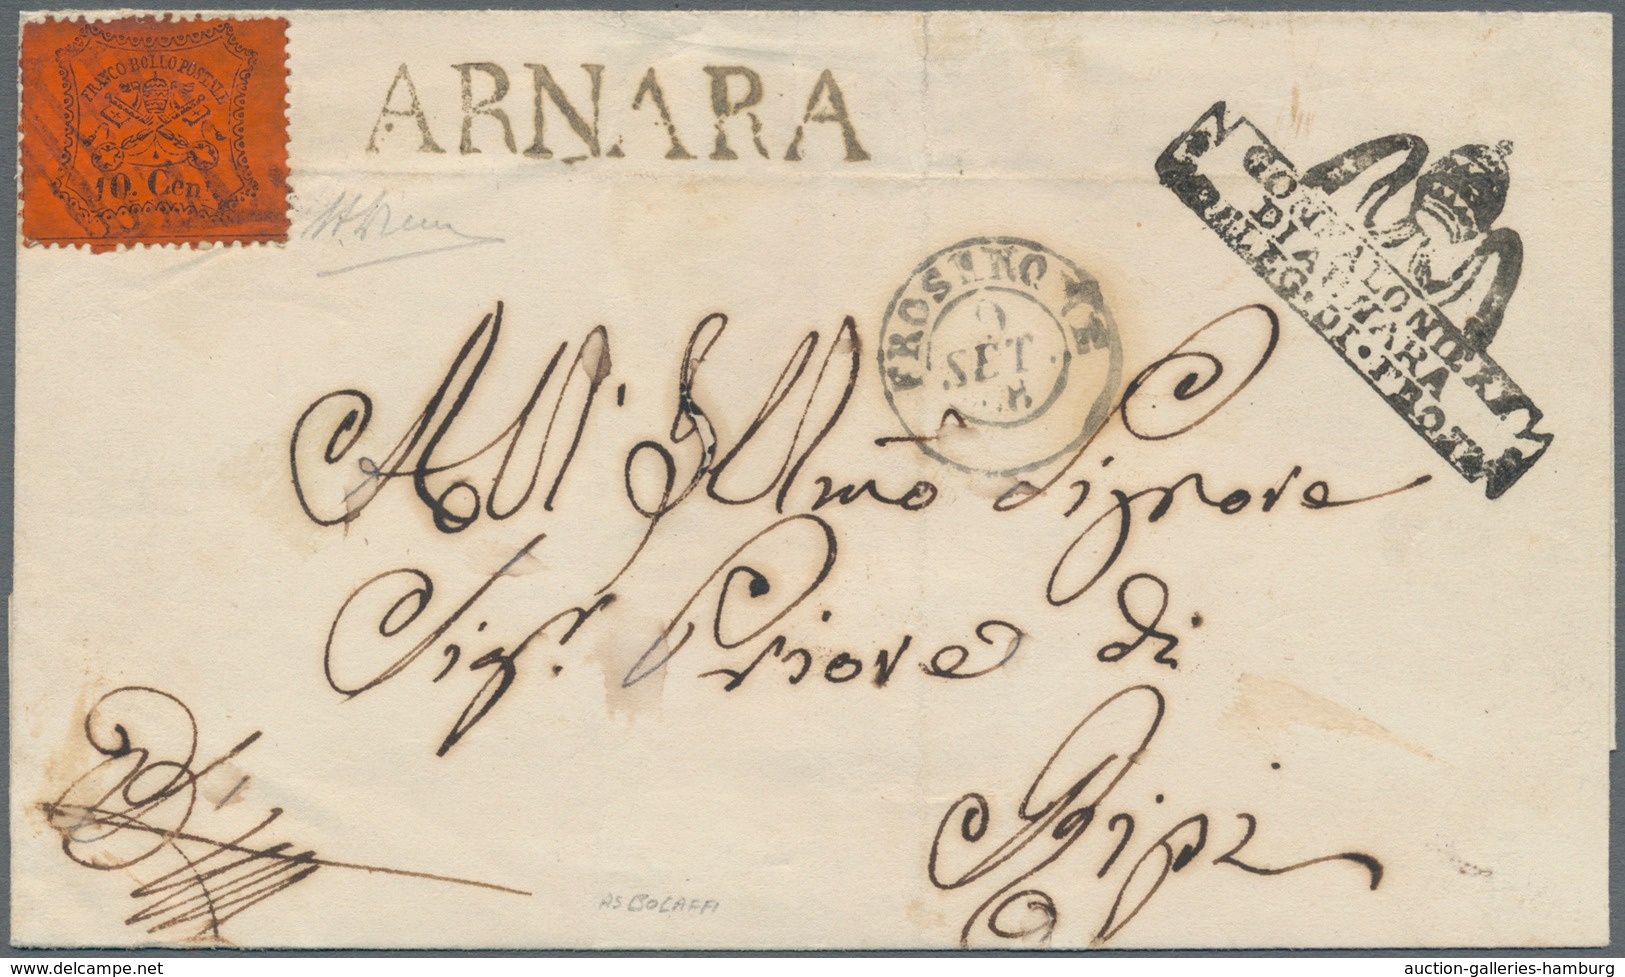 FRANCO BOLLO POSTALE
10. Cent
ARNARA
GONFALONIERE
DI ARNARA
DELEG. DI
FROSINONE
SET
All' Illmo Signore
Sigr. Priore di
Ripi
AS BOLAFFI
delcampe.net
auction-galleries-hamburg